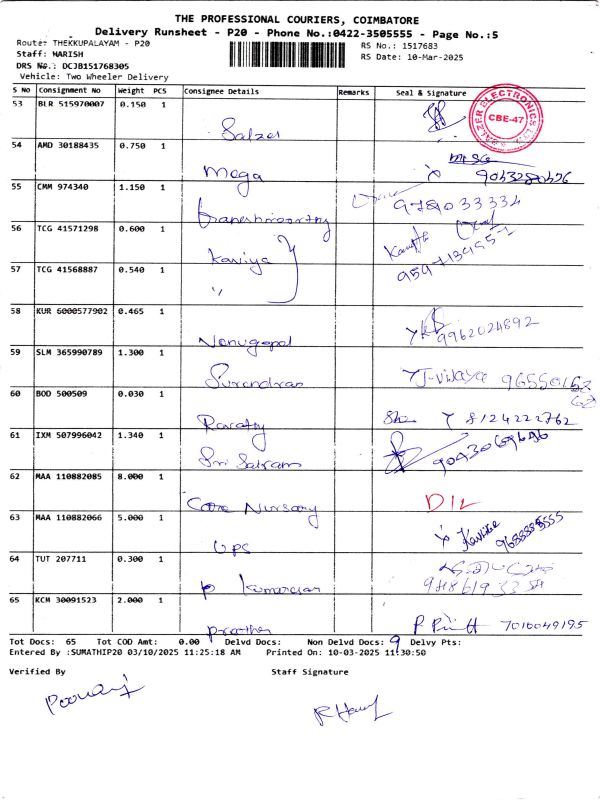 THE PROFESSIONAL COURIERS, COIMBATORE
Delivery Runsheet - P20 - Phone No.:0422-3505555 - Page No.:5
Route: THEKKUPALAYAM - P20
Staff: HARISH
DRS No.: DCJB151768305
Vehicle: Two Wheeler Delivery
RS No.: 1517683
RS Date: 10-Mar-2025
S No Consignment No Weight PCS Consignee Details Remarks Seal & Signature
53 BLR 515970007 0.150 1 Salzer
SALZER ELECTRONICS LTD CBE-47
54 AMD 30188435 0.750 1 Mega
55 CMM 974340 1.150 1 9789033334
56 TCG 41571298 0.600 1 Kaviya
57 TCG 41568887 0.540 1 "
58 KUR 6000577902 0.465 1 Venugopal 9962024892
59 SLM 365990789 1.300 1 Surendran
60 BOD 500509 0.030 1 8124222762
61 IXM 507996042 1.340 1 Sri Sairam
62 MAA 110882085 8.000 1 Core Nursery DIL
63 MAA 110882066 5.000 1 UPS
64 TUT 207711 0.300 1
65 KCM 30091523 2.000 1 7010049195
Tot Docs: 65 Tot COD Amt: 0.00 Delvd Docs: Non Delvd Docs: 9 Delvy Pts:
Entered By :SUMATHIP20 03/10/2025 11:25:18 AM Printed On: 10-03-2025 11:30:50
Verified By Staff Signature